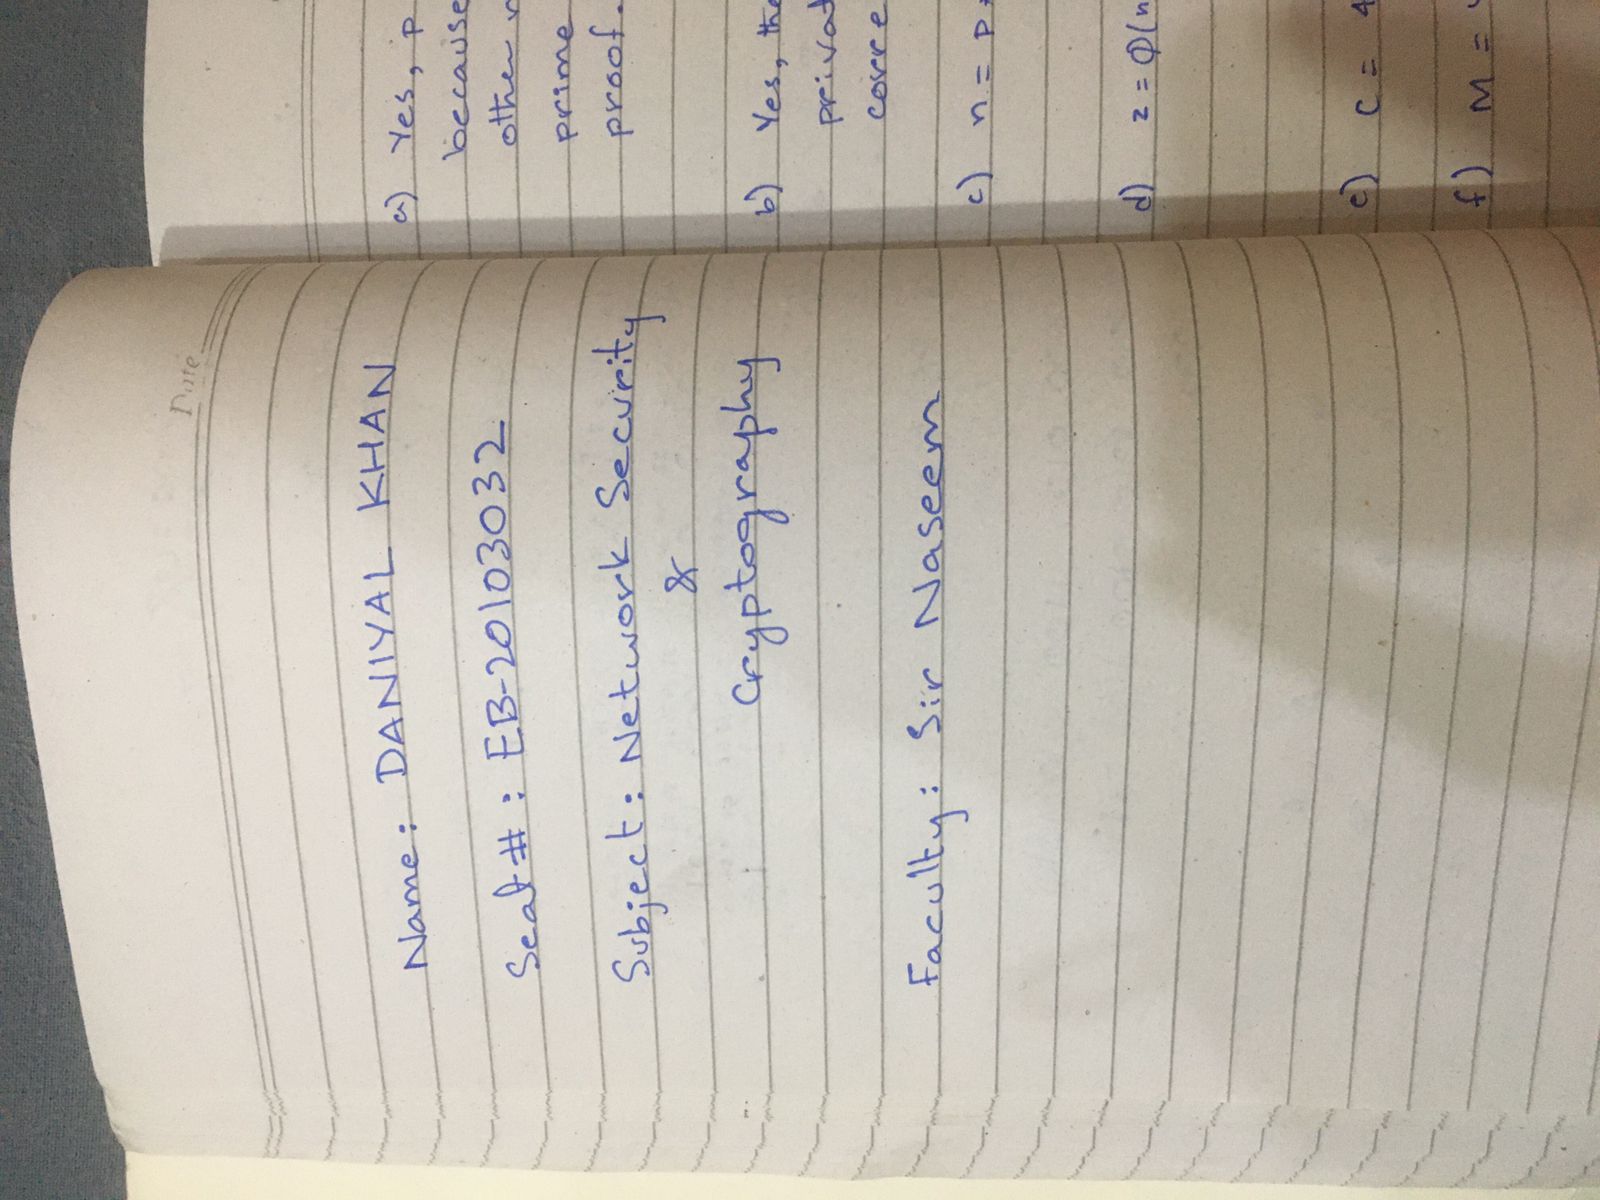 Date
Name: DANIYAL KHAN
Seat #: EB-20103032
Subject: Network Security
&
Cryptography
Faculty: Sir Naseem
a) Yes, p
because
other
prime
proof.
b) Yes, the
privat
corre
c) n = p
d) z = Φ(n
e) C = 4
f) M =